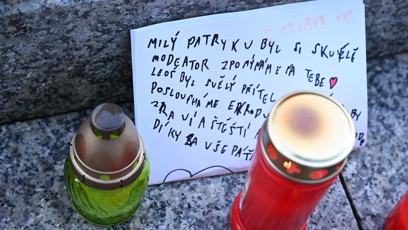 MILÝ PATRYKU BYL SI SKVĚLÉ
MODEATOR ZPOMÍNÁME NA TEBE ♥
LEOŠ BYL SVĚLÝ PŘÍTEL
POSLOUCHA ME
ZRAVÍ A ŠTĚSTÍ BY
DÍKY ZA VŠE